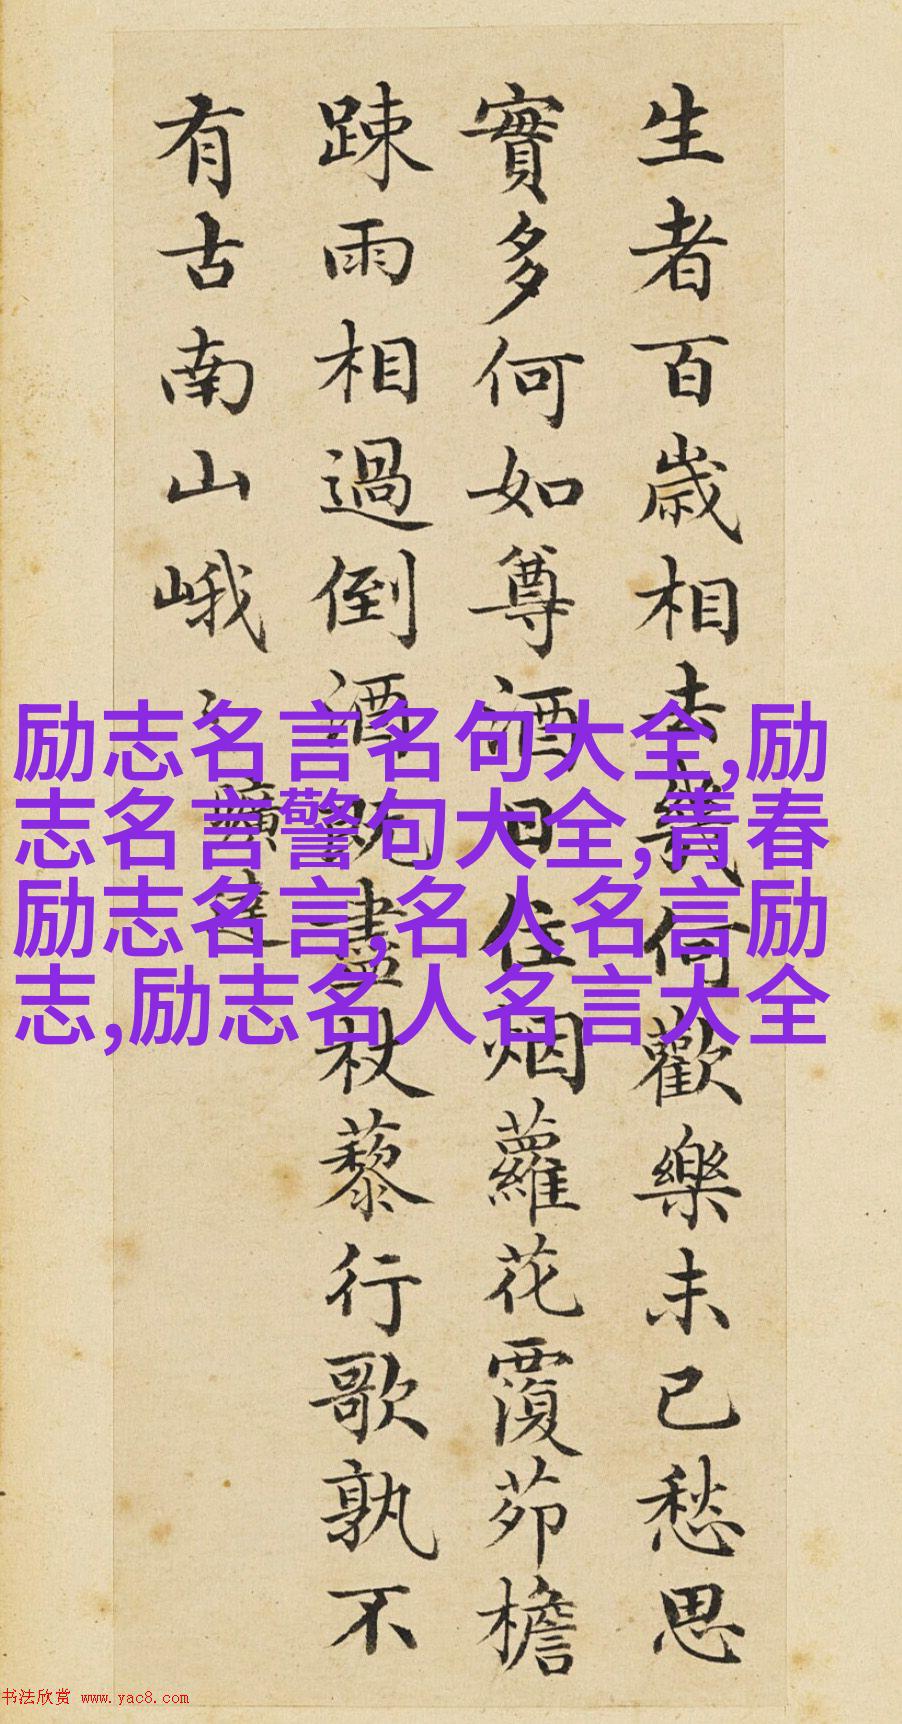 生者百歳相去幾何歡樂未已愁思
實多何如尊酒日往烟蘿花覆茆檐
踈雨相過倒酒既盡杖藜行歌孰不
有古南山峨〻
曠達
励志名言名句大全,励
志名言警句大全,青春
励志名言,名人名言励
志,励志名人名言大全
书法欣赏 www.yac8.com